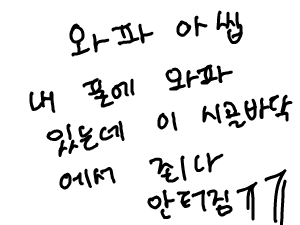 와파 아씹
내 폴에 와파
있는데 이 시골바닥
에서 존나
안터짐ㅠㅠ